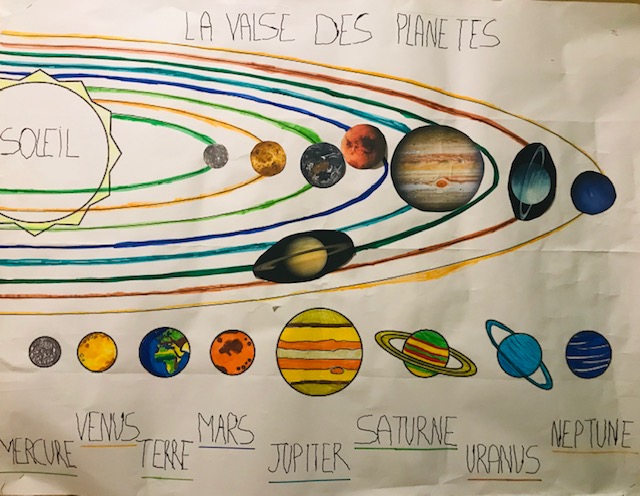 LA VALSE DES PLANETES
SOLEIL
MERCURE
VENUS
TERRE
MARS
JUPITER
SATURNE
URANUS
NEPTUNE